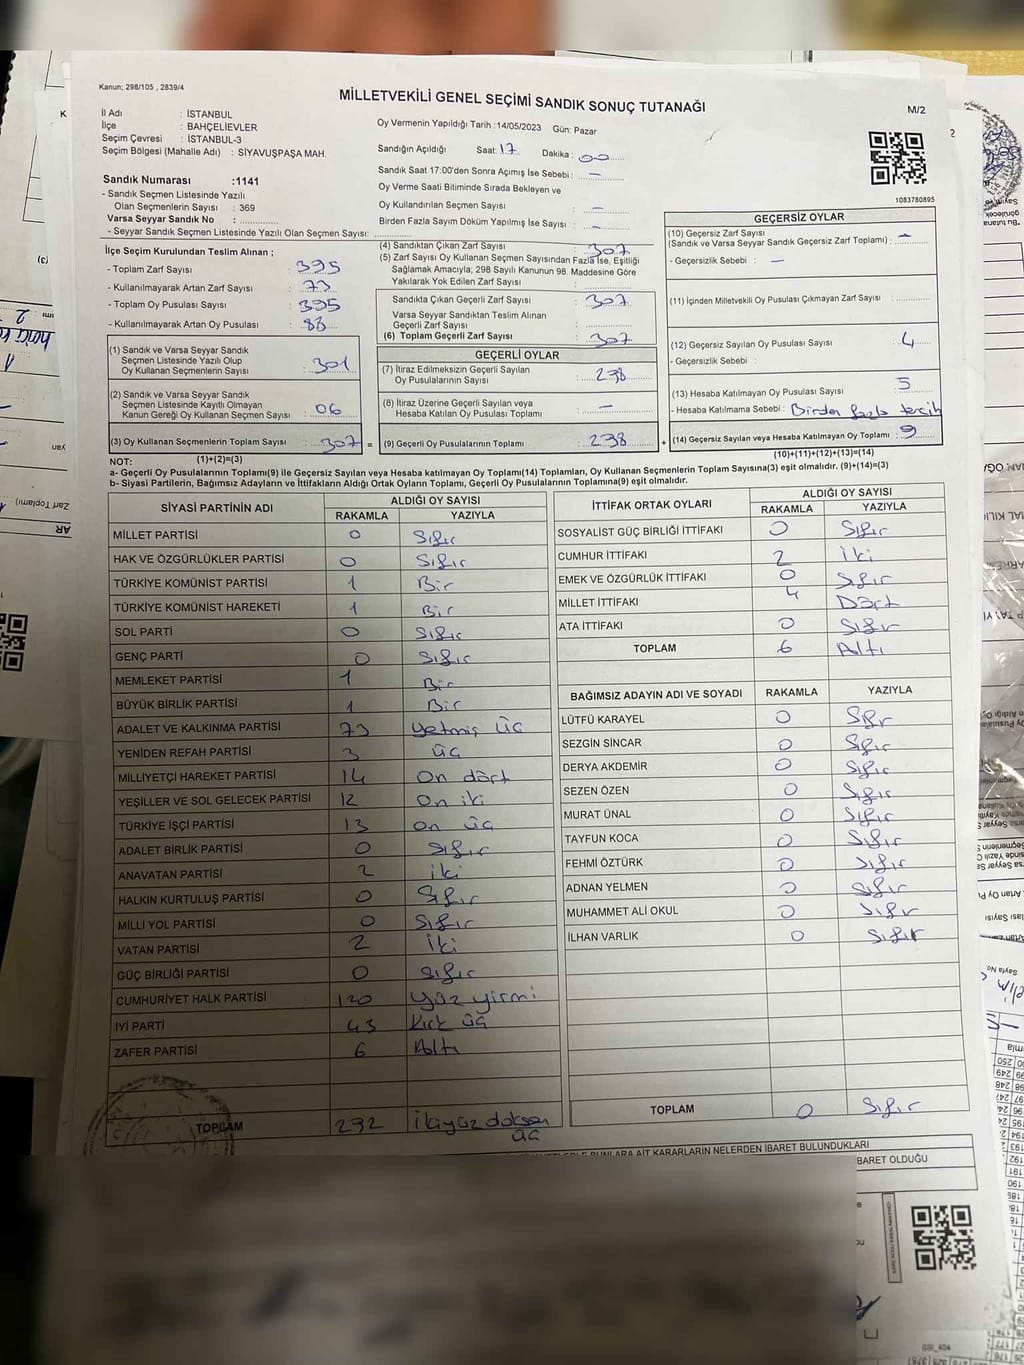 Kanun; 298/105 , 2839/4
MİLLETVEKİLİ GENEL SEÇİMİ SANDIK SONUÇ TUTANAĞI
M/2
İl Adı : İSTANBUL
İlçe : BAHÇELİEVLER
Seçim Çevresi : İSTANBUL-3
Seçim Bölgesi (Mahalle Adı) : SİYAVUŞPAŞA MAH.
Sandık Numarası :1141
- Sandık Seçmen Listesinde Yazılı
Olan Seçmenlerin Sayısı : 369
Varsa Seyyar Sandık No :
- Seyyar Sandık Seçmen Listesinde Yazılı Olan Seçmen Sayısı:
Oy Vermenin Yapıldığı Tarih :14/05/2023 Gün: Pazar
Sandığın Açıldığı Saat: 17 Dakika : 00
Sandık Saat 17:00'den Sonra Açımış İse Sebebi : –
Oy Verme Saati Bitiminde Sırada Bekleyen ve
Oy Kullandırılan Seçmen Sayısı : –
Birden Fazla Sayım Döküm Yapılmış İse Sayısı : –
1083780895
İlçe Seçim Kurulundan Teslim Alınan ;
- Toplam Zarf Sayısı : 395
- Kullanılmayarak Artan Zarf Sayısı : 73
- Toplam Oy Pusulası Sayısı : 395
- Kullanılmayarak Artan Oy Pusulası : 88
(1) Sandık ve Varsa Seyyar Sandık
Seçmen Listesinde Yazılı Olup
Oy Kullanan Seçmenlerin Sayısı : 301
(2) Sandık ve Varsa Seyyar Sandık
Seçmen Listesinde Kayıtlı Olmayan
Kanun Gereği Oy Kullanan Seçmen Sayısı : 06
(3) Oy Kullanan Seçmenlerin Toplam Sayısı : 307 =
(1)+(2)=(3)
(4) Sandıktan Çıkan Zarf Sayısı : 307
(5) Zarf Sayısı Oy Kullanan Seçmen Sayısından Fazla İse, Eşitliği
Sağlamak Amacıyla; 298 Sayılı Kanunun 98. Maddesine Göre
Yakılarak Yok Edilen Zarf Sayısı :
Sandıkta Çıkan Geçerli Zarf Sayısı : 307
Varsa Seyyar Sandıktan Teslim Alınan
Geçerli Zarf Sayısı :
(6) Toplam Geçerli Zarf Sayısı : 307
GEÇERLİ OYLAR
(7) İtiraz Edilmeksizin Geçerli Sayılan
Oy Pusulalarının Sayısı : 298
(8) İtiraz Üzerine Geçerli Sayılan veya
Hesaba Katılan Oy Pusulası Toplamı : –
(9) Geçerli Oy Pusulalarının Toplamı : 298 +
GEÇERSİZ OYLAR
(10) Geçersiz Zarf Sayısı
(Sandık ve Varsa Seyyar Sandık Geçersiz Zarf Toplamı) : –
- Geçersizlik Sebebi : –
(11) İçinden Milletvekili Oy Pusulası Çıkmayan Zarf Sayısı :
(12) Geçersiz Sayılan Oy Pusulası Sayısı : 4
- Geçersizlik Sebebi :
(13) Hesaba Katılmayan Oy Pusulası Sayısı : 5
- Hesaba Katılmama Sebebi : Birden fazla tercih
(14) Geçersiz Sayılan veya Hesaba Katılmayan Oy Toplamı : 9
(10)+(11)+(12)+(13)=(14)
NOT:
a- Geçerli Oy Pusulalarının Toplamı(9) ile Geçersiz Sayılan veya Hesaba katılmayan Oy Toplamı(14) Toplamları, Oy Kullanan Seçmenlerin Toplam Sayısına(3) eşit olmalıdır. (9)+(14)=(3)
b- Siyasi Partilerin, Bağımsız Adayların ve İttifakların Aldığı Ortak Oyların Toplamı, Geçerli Oy Pusulalarının Toplamına(9) eşit olmalıdır.
SİYASİ PARTİNİN ADI ALDIĞI OY SAYISI
RAKAMLA YAZIYLA
MİLLET PARTİSİ 0 Sıfır
HAK VE ÖZGÜRLÜKLER PARTİSİ 0 Sıfır
TÜRKİYE KOMÜNİST PARTİSİ 1 Bir
TÜRKİYE KOMÜNİST HAREKETİ 1 Bir
SOL PARTİ 0 Sıfır
GENÇ PARTİ 0 Sıfır
MEMLEKET PARTİSİ 1 Bir
BÜYÜK BİRLİK PARTİSİ 1 Bir
ADALET VE KALKINMA PARTİSİ 73 Yetmiş üç
YENİDEN REFAH PARTİSİ 3 üç
MİLLİYETÇİ HAREKET PARTİSİ 14 On dört
YEŞİLLER VE SOL GELECEK PARTİSİ 12 On iki
TÜRKİYE İŞÇİ PARTİSİ 13 On üç
ADALET BİRLİK PARTİSİ 0 Sıfır
ANAVATAN PARTİSİ 2 iki
HALKIN KURTULUŞ PARTİSİ 0 Sıfır
MİLLİ YOL PARTİSİ 0 Sıfır
VATAN PARTİSİ 2 İki
GÜÇ BİRLİĞİ PARTİSİ 0 Sıfır
CUMHURİYET HALK PARTİSİ 120 Yüz yirmi
İYİ PARTİ 43 Kırk üç
ZAFER PARTİSİ 6 Altı
TOPLAM 292 İkiyüz doksan
üç
İTTİFAK ORTAK OYLARI ALDIĞI OY SAYISI
RAKAMLA YAZIYLA
SOSYALİST GÜÇ BİRLİĞİ İTTİFAKI 0 Sıfır
CUMHUR İTTİFAKI 2 İki
EMEK VE ÖZGÜRLÜK İTTİFAKI 0 Sıfır
MİLLET İTTİFAKI 4 Dört
ATA İTTİFAKI 0 Sıfır
TOPLAM 6 Altı
BAĞIMSIZ ADAYIN ADI VE SOYADI RAKAMLA YAZIYLA
LÜTFÜ KARAYEL 0 Sıfır
SEZGİN SİNCAR 0 Sıfır
DERYA AKDEMİR 0 Sıfır
SEZEN ÖZEN 0 Sıfır
MURAT ÜNAL 0 Sıfır
TAYFUN KOCA 0 Sıfır
FEHMİ ÖZTÜRK 0 Sıfır
ADNAN YELMEN 0 Sıfır
MUHAMMET ALİ OKUL 0 Sıfır
İLHAN VARLIK 0 Sıfır
TOPLAM 0 Sıfır
BUNLARA AİT KARARLARIN NELERDEN İBARET BULUNDUKLARI
BARET OLDUĞU